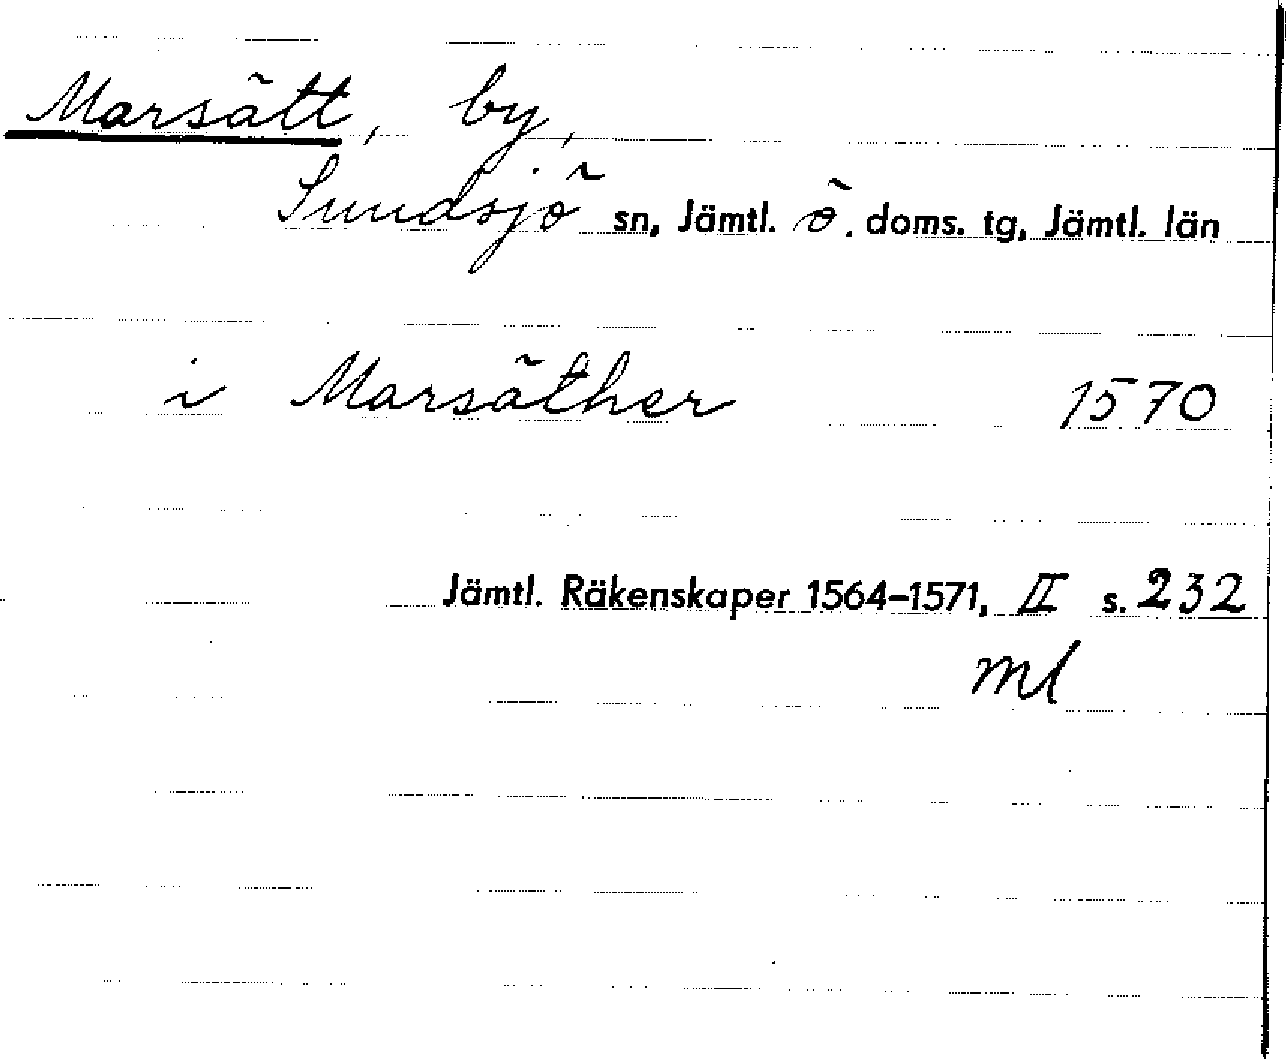 Marsätt, by,
Sundsjö sn, Jämtl. ö. doms. tg, Jämtl. län
i Marsäther 1570
Jämtl. Räkenskaper 1564-1571, II s. 232
ml